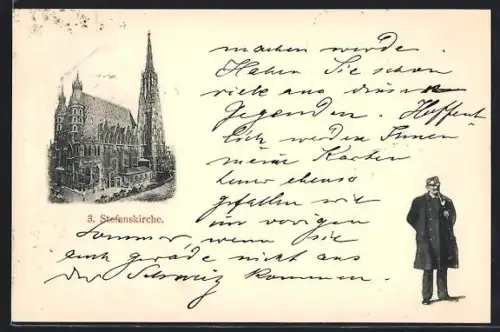 machen werde.
Haben Sie schon
viele aus diesen
Gegenden. Hoffent
lich werden Ihnen
meine Karten
heuer ebenso
gefallen wie
im vorigen
3. Stefanskirche.
Sommer, wenn sie
auch gerade nicht aus
der Schweiz kommen.